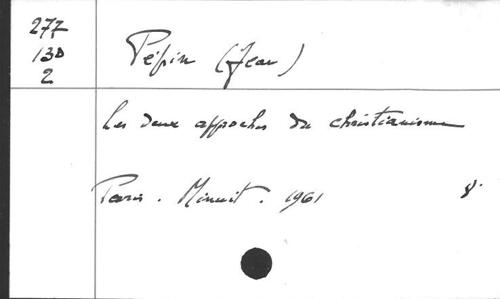 277
13D
2
Pépin (Jean)
Les deux approches du christianisme
Paris. Minuit. 1961 8°